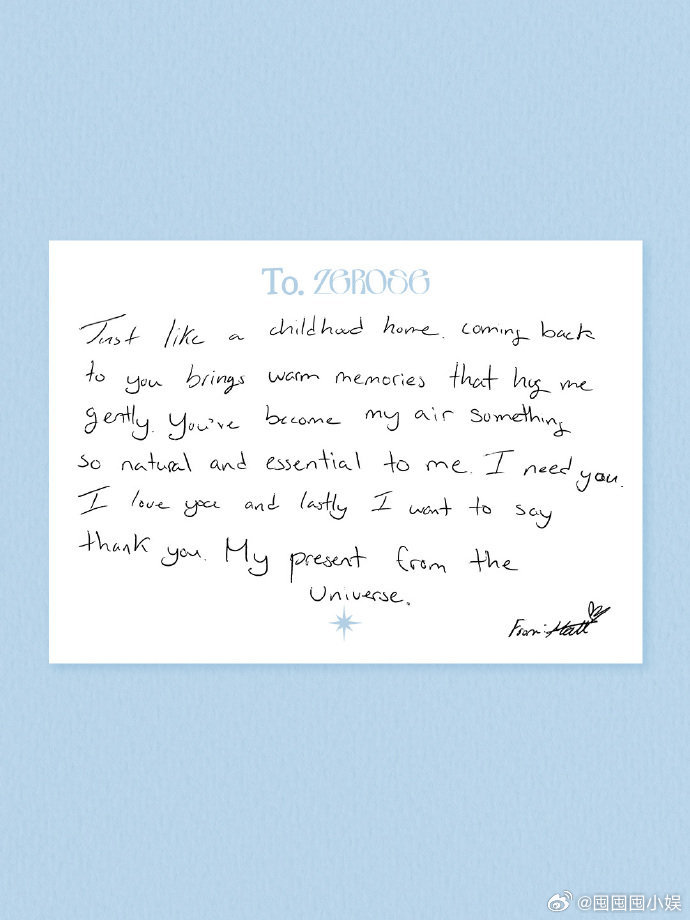 To. ZEROSE
Just like a childhood home. coming back
to you brings warm memories that hug me
gently. You've become my air something
so natural and essential to me. I need you.
I love you and lastly I want to say
thank you. My present from the
Universe.
From: Matt
@囤囤囤小娱